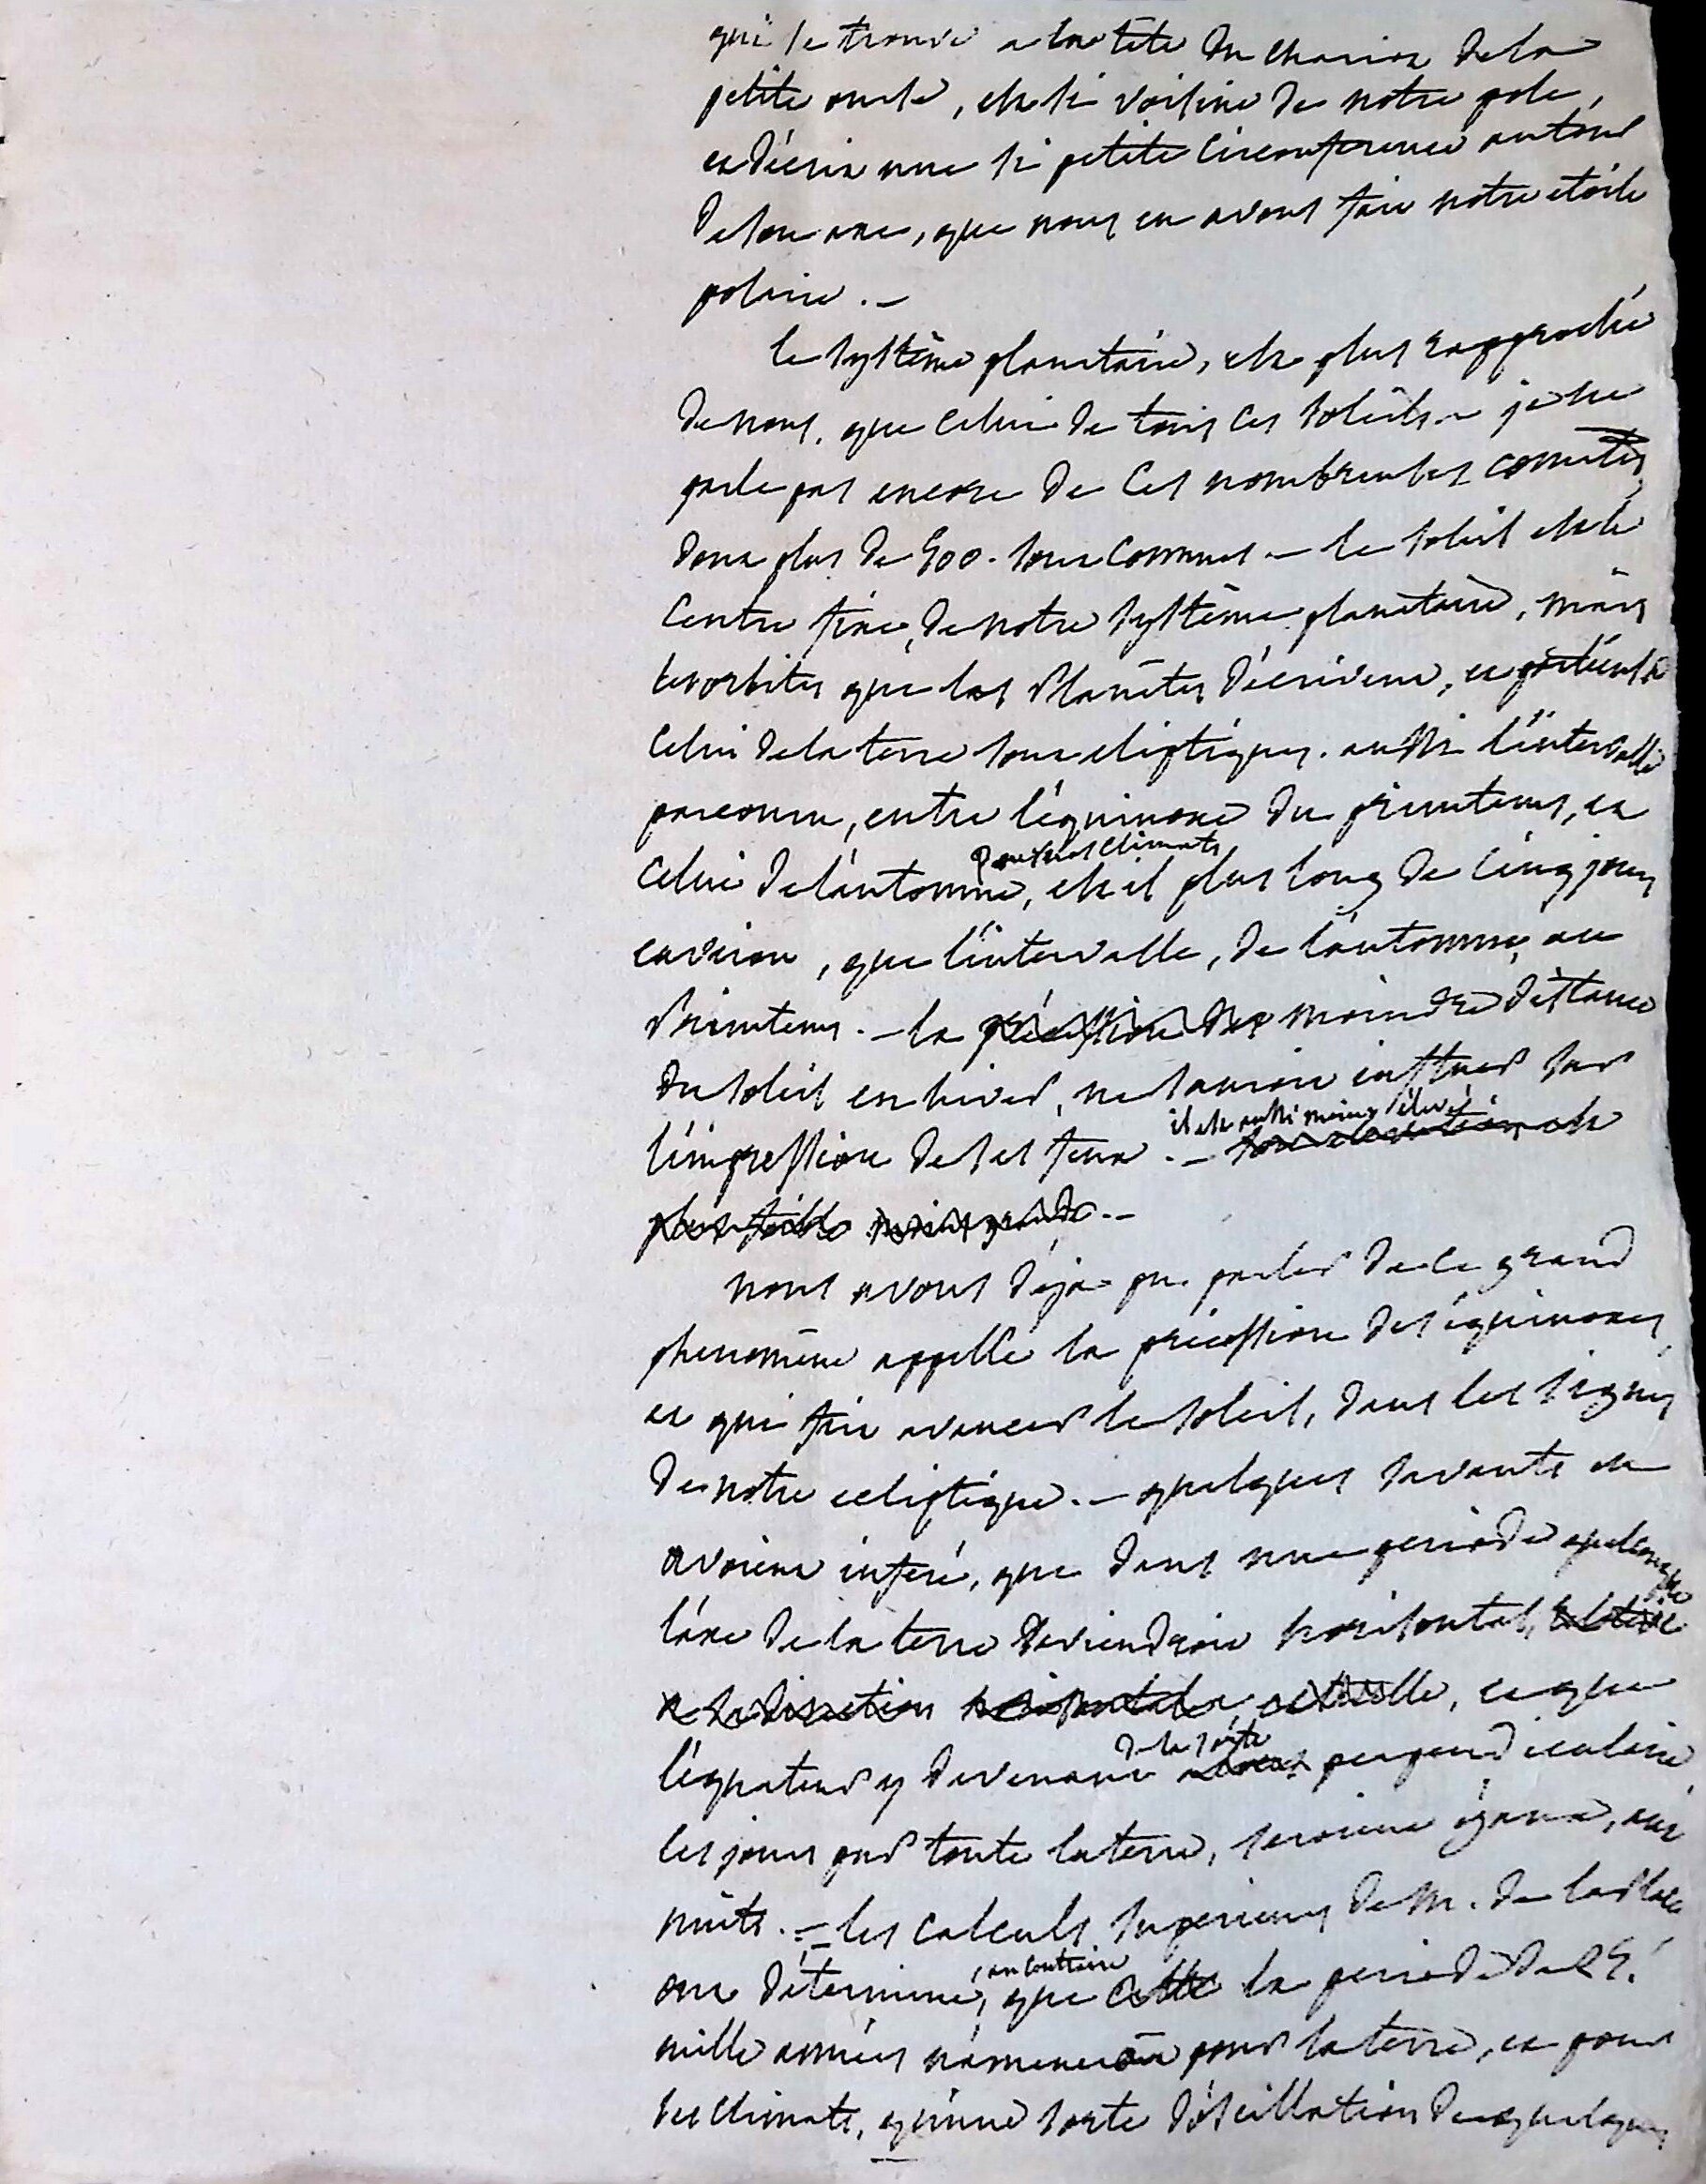 qui se trouve a la tête du chariot de la
petite ourse, est si voisine de notre pole,
et décrit une si petite circonference autour
de son axe, que nous en avons fait notre etoile
polaire. —
le systême planetaire, est plus rapproché
de nous, que celui de tous ces soleils — je ne
parle pas encore de ces nombreuses comètes
dont plus de 500. sont connues — le soleil est le
centre fixe, de notre systême planetaire, mais
les orbites que les Planètes décrivent, et
celui de la terre sont eliptiques. aussi l'intervalle
parcouru, entre l'équinoxe du printems, et
pour nos climats
celui de l'automne, est il plus long de cinq jours
environ, que l'intervalle, de l'automne, au
Printems. — la précession des moindre distance
du soleil en hiver, ne sauroit influer sur
il est aussi moins élevé
l'impression de ses feux. — son elevation est
plus foible moins grande. —
nous avons déja pu parler de ce grand
phenomène appellé la précession des équinoxes,
et qui fait avancer le soleil, dans les signes
de notre ecliptique. — quelques savants en
avoient inferé, que dans une periode quelconque
l'axe de la terre deviendroit horisontal, relative
a sa direction horisontale, actuelle, et que
de la sorte
l'équateur y devenant alors perpendiculaire,
les jours par toute la terre, seroient égaux, aux
nuits. — les calculs superieurs de M. de la Place
au contraire
ont déterminé, que cette la periode de 25.
mille années n'ameneroit pour la terre, et pour
ses climats, qu'une sorte d'oscillation de quelques